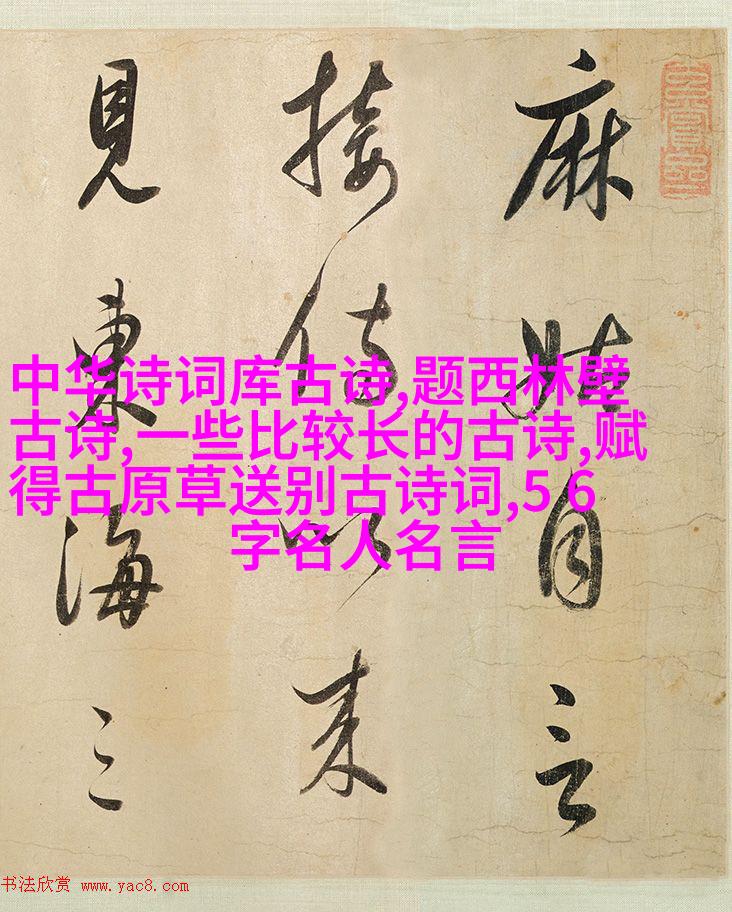 麻姑自言
接侍以来
見東海三
中华诗词库古诗,题西林壁
古诗,一些比较长的古诗,赋
得古原草送别古诗词,5 6
字名人名言
书法欣赏 www.yac8.com